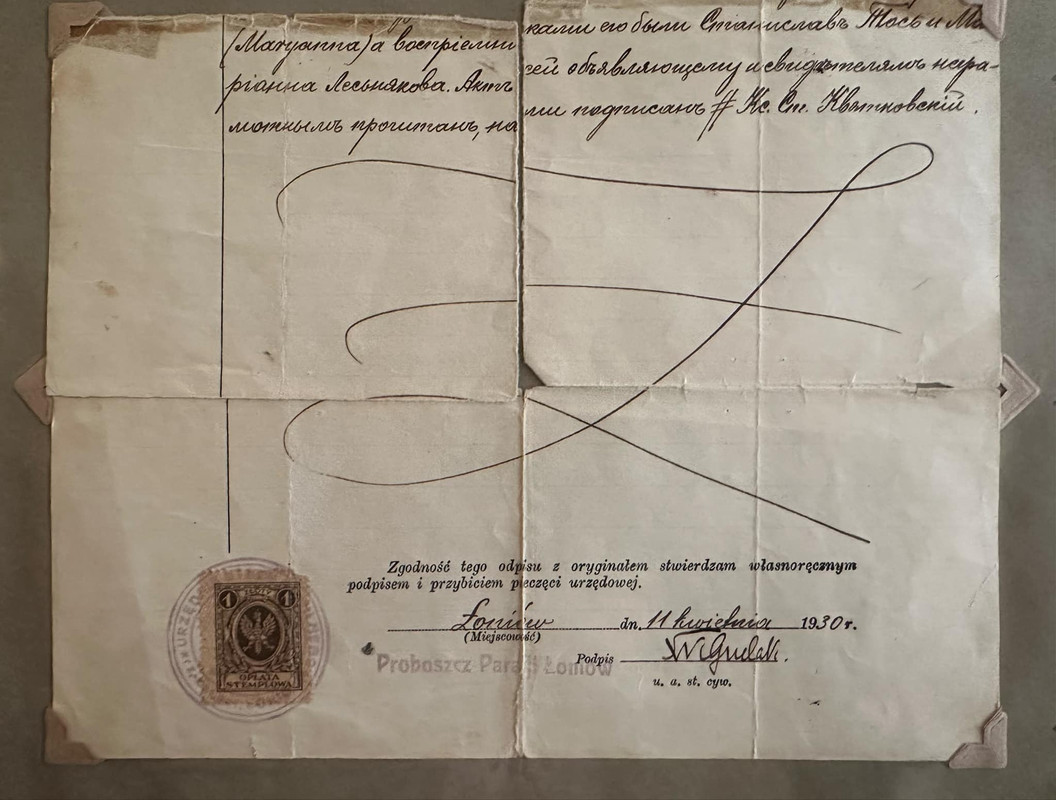 (Maryanna) а воспріемни ками его были Станиславъ Тось и Ма
ріанна Лесьнякова. Актъ сей объявляющему и свидѣтелямъ негра-
мотнымъ прочитанъ, на ми подписанъ # Кс. Ст. Квятковскій.
Zgodność tego odpisu z oryginałem stwierdzam własnoręcznym
podpisem i przybiciem pieczęci urzędowej.
Łoniów dn. 11 kwietnia 1930 r.
(Miejscowość)
Podpis
Proboszcz Parafii Łoniów
u. a. st. cyw.
1 ZŁOTY 1
OPŁATA
STEMPLOWA